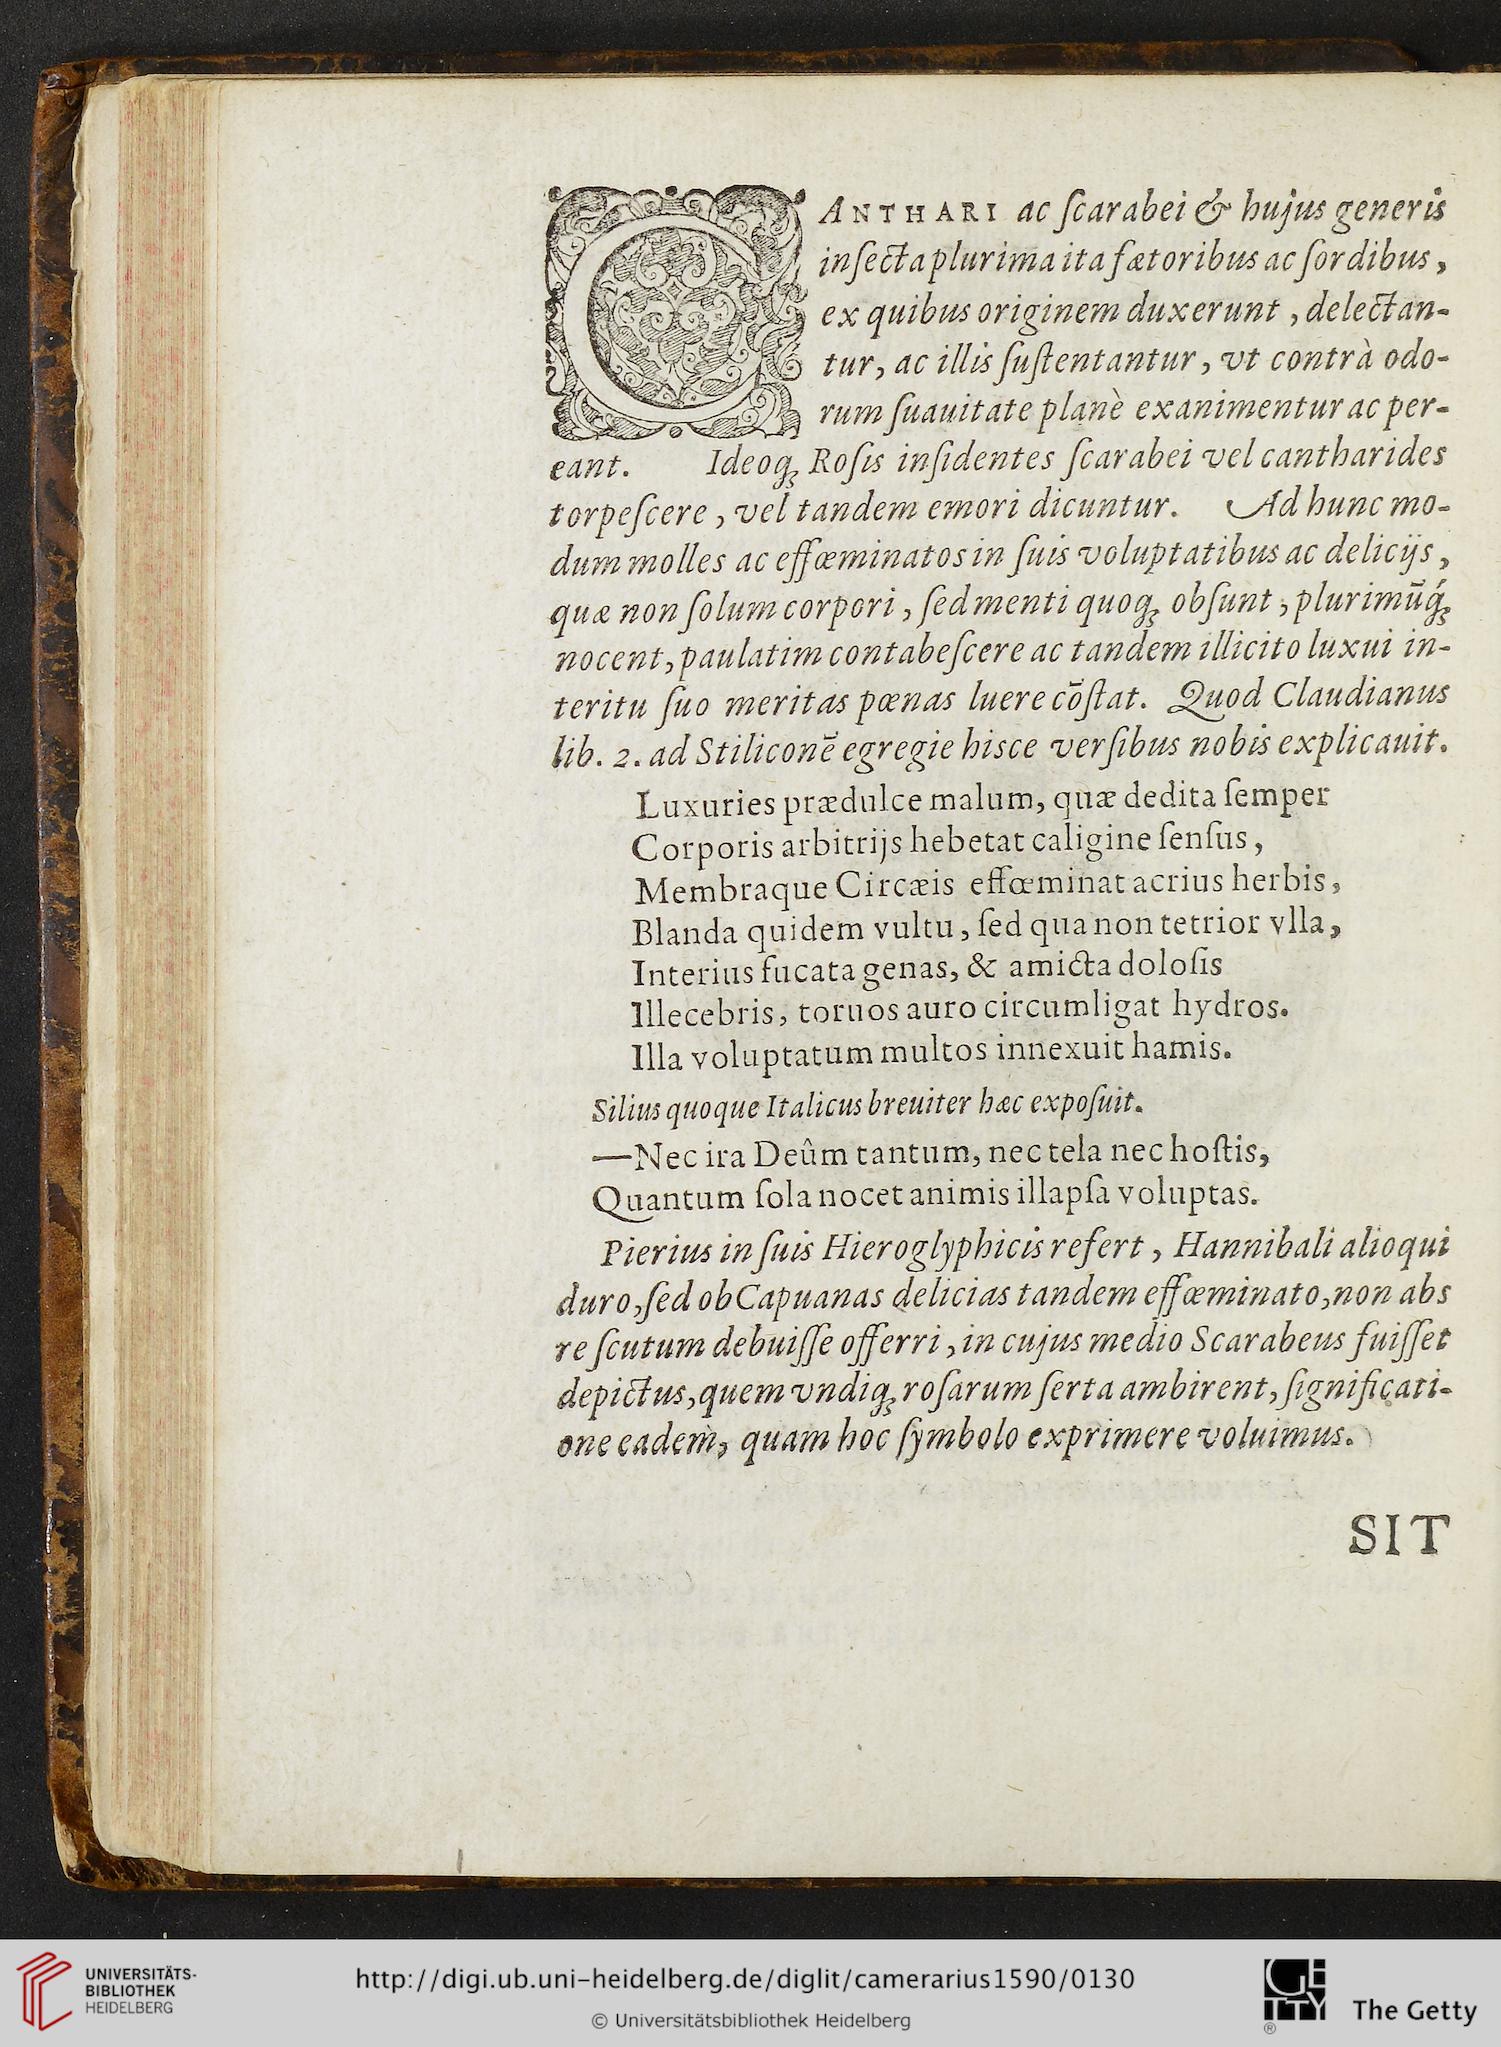 CANTHARI ac ſcarabei & hujus generis
inſecta plurima ita fætoribus ac ſordibus,
ex quibus originem duxerunt, delectan-
tur, ac illis ſuſtentantur, vt contrà odo-
rum ſuauitate planè exanimentur ac per-
eant. Ideoq́ꝫ Roſis inſidentes ſcarabei vel cantharides
torpeſcere, vel tandem emori dicuntur. Ad hunc mo-
dum molles ac effœminatos in ſuis voluptatibus ac delicijs,
quæ non ſolum corpori, ſed menti quoqꝫ obſunt, plurimūq́ꝫ
nocent, paulatim contabeſcere ac tandem illicito luxui in-
teritu ſuo meritas pœnas luere cōſtat. Quod Claudianus
lib. 2. ad Stiliconē egregie hisce verſibus nobis explicauit.
Luxuries prædulce malum, quæ dedita ſemper
Corporis arbitrijs hebetat caligine ſenſus,
Membraque Circæis effœminat acrius herbis,
Blanda quidem vultu, ſed qua non tetrior vlla,
Interius fucata genas, & amicta doloſis
Illecebris, toruos auro circumligat hydros.
Illa voluptatum multos innexuit hamis.
Silius quoque Italicus breuiter hæc expoſuit.
—Nec ira Deûm tantum, nec tela nec hoſtis,
Quantum ſola nocet animis illapſa voluptas.
Pierius in ſuis Hieroglyphicis refert, Hannibali alioqui
duro, ſed ob Capuanas delicias tandem effœminato, non abs
re ſcutum debuiſſe offerri, in cujus medio Scarabeus fuiſſet
depictus, quem vndiqꝫ roſarum ſerta ambirent, ſignificati-
one eadem, quam hoc ſymbolo exprimere voluimus.
SIT
UNIVERSITÄTS-
BIBLIOTHEK
HEIDELBERG
http://digi.ub.uni-heidelberg.de/diglit/camerarius1590/0130
© Universitätsbibliothek Heidelberg
GETTY
®
The Getty